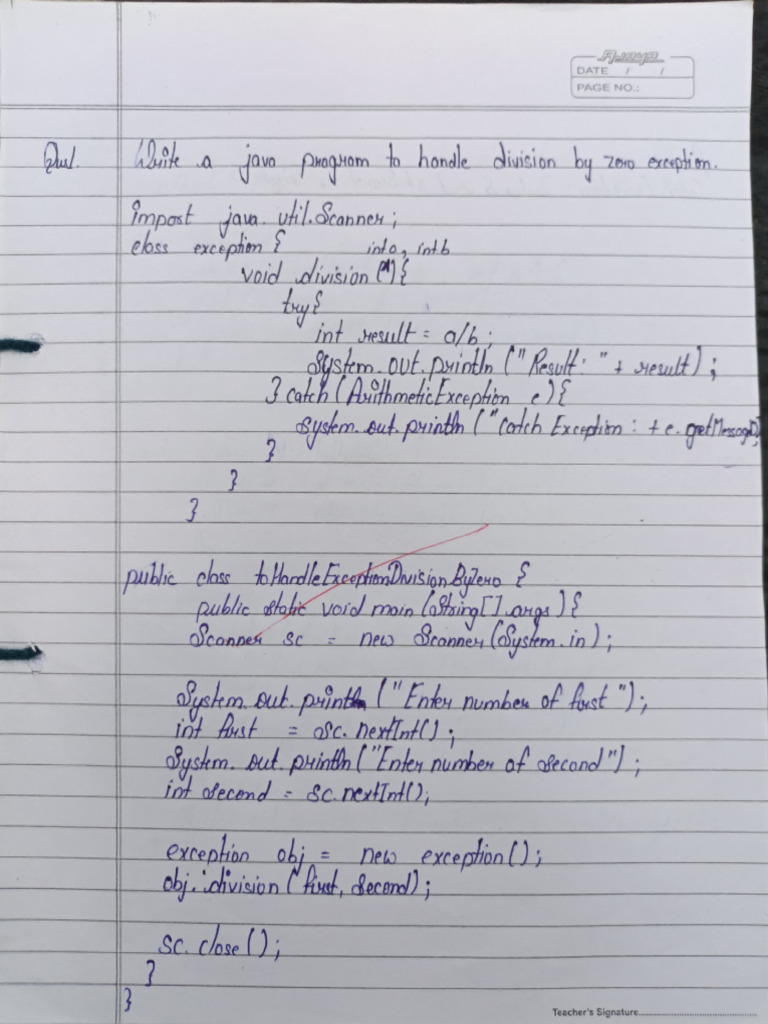 Ajaya
DATE / /
PAGE NO.:
Qu1. Write a java program to handle division by zero exception.
import java.util.Scanner;
class exception {
int a, int b
void division (^) {
try {
int result = a/b ;
System.out.println ("Result: " + result) ;
} catch (ArithmeticException e) {
System.out.println ("Catch Exception : + e.getMessage());
}
}
}
public class toHandleExceptionDivisionByZero {
public static void main (String[] args) {
Scanner sc = new Scanner (System.in) ;
System.out.println ("Enter number of first ") ;
int first = sc.nextInt() ;
System.out.println ("Enter number of second") ;
int second = sc.nextInt();
exception obj = new exception() ;
obj.division (first, second) ;
sc.close() ;
}
}
Teacher's Signature